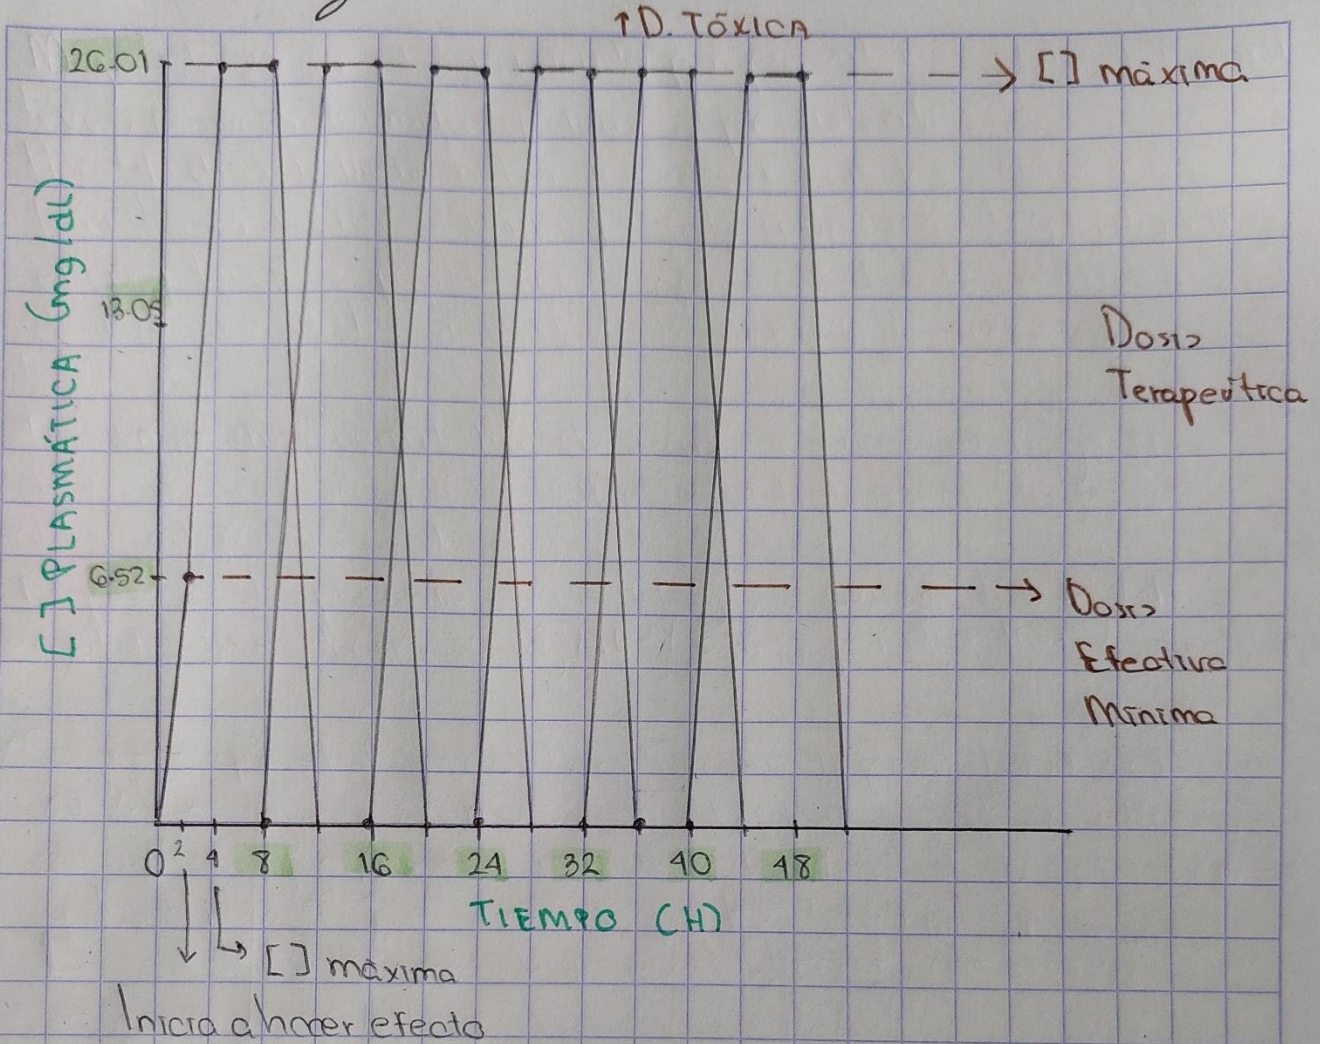 ↑D. TÓXICA
26.01
→ [ ] máxima
[ ] PLASMÁTICA (mg/dl)
13.05
Dosis
Terapeútica
6.52
→ Dosis
Efectiva
Mínima
0 2 4 8 16 24 32 40 48
TIEMPO (H)
[ ] máxima
Inicia a hacer efecto